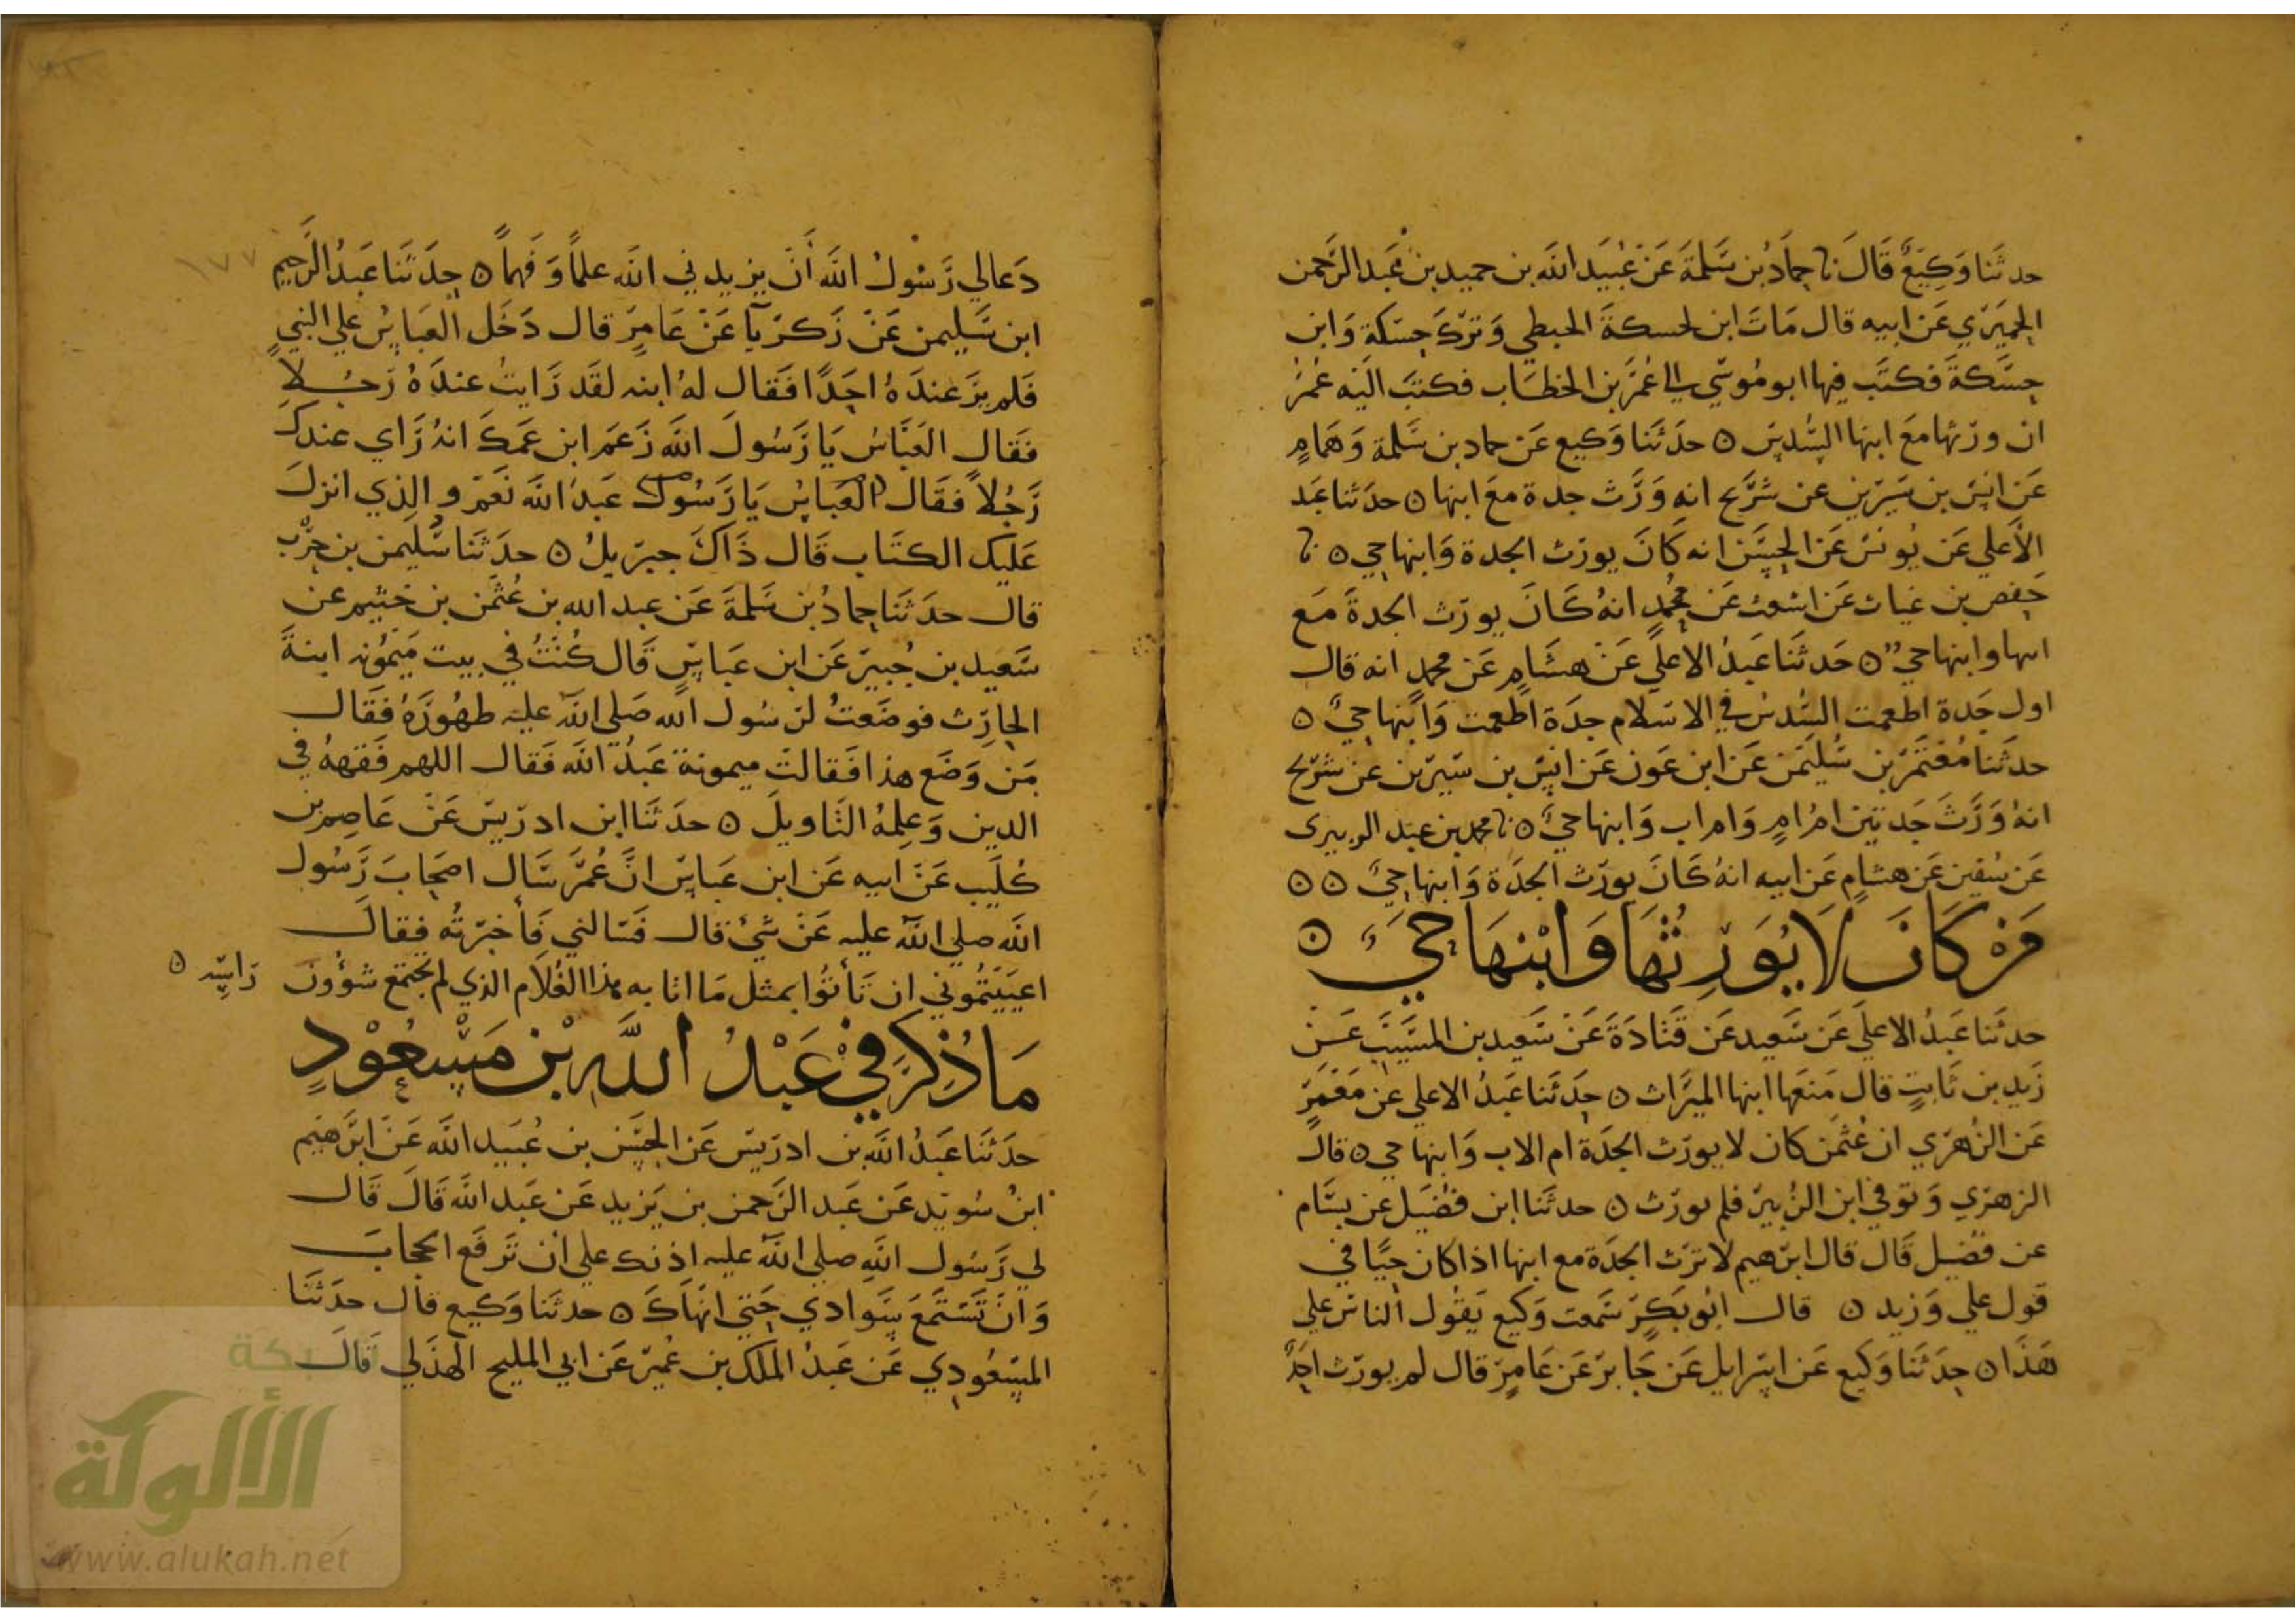 حدثنا وَكِيعٌ قَالَ نا حمادُ بن سَلمةَ عَنْ عُبَيد الله بن حميد بن عَبد الرَّحمن
الحِميَرَي عَن ابيه قال مَاتَ ابن لحسكةَ الحبطي وَتَركَ حسكة وَابن
حِسَكةَ فكتبَ فيها ابو مُوسَي الي عُمَرَ بن الخطاب فكتبَ اليَه عُمرُ
ان ورثها معَ ابنها السُّدسَ ٥ حدثَنا وَكيع عَن حماد بن سَلمة وَهمامٍ
عَن انس بن سَيرين عن شُرَيح انه وَرَّث جدة معَ ابنها ٥ حدثنا عَبد
الأعلي عَن يُونسَ عَن الحسَن انه كَانَ يورث الجدة وَابنها حي ٥ نا
حَفص بن غياث عَن اشعث عَن مُحمدٍ انهُ كَانَ يورَث الجدةَ مَع
ابنها وابنها حي ٥ حَدثنَا عَبدُ الاعلي عَنْ هشَامٍ عَن محمدٍ انه قال
اول جَدة اطعمت السُّدسَ في الاسْلام جدَة اطعمت وَابنها حيٌ ٥
حدثنا مُعتَمرَ بن سُليمَن عَن ابن عَون عَن انسِ بن سَيرَين عن شُرَيح
انهُ وَرَّثَ جَدتين امَ امٍ وَام اب وَابنها حيٌ ٥ نا محمد بن عبَد الزبيرى
عَن سُفين عَن هشامٍ عَن ابيه انهُ كَانَ يورّث الجدَة وَابنها حيٌ ٥ ٥
مَنْ كَانَ لَا يُوَرِثُهَا وَابْنهَا حَيٌ ٥
حدثَنا عَبدُ الاعلَي عَن سَعيد عَن قَتَادَةَ عَنْ سَعيد بن المسَيبَ عَن
زَيد بن ثَابتٍ قال مَنعَها ابنها الميرَاث ٥ حدَثَنا عَبدُ الاعلي عَن مَعْمَرٍ
عَن الزُهري ان عُثمَن كان لا يورَث الجدَة ام الاب وَابنها حي ٥ قال
الزهري وَتوفي ابن الزُبير فلم يورّث ٥ حدثَنا ابن فُضَيل عن بسَّام
عن فضَيل قَال قال ابرَهيم لا ترَث الجدَة مع ابنها اذا كان حيًا في
قول علي وَزيد ٥ قال ابُو بَكر سَمعت وَكيع يَقُول الناس علي
هَذا ٥ حدَثَنا وَكيع عَن اسَرايل عَن جَابر عَن عَامرٍ قال لم يورّث احَدٌ
دَعا لي رَسُولُ الله أنَ يزيدني الله علماً وَفَهماً ٥ حدَثَنا عَبدُ الرَحيم
ابن سَليمن عَنْ زَكريَآ عَنْ عَامرٍ قال دَخَل العَباسُ علي النبي
فَلم يرَ عندَهُ احَدًا فَقال لهُ ابنه لقَد رَايتُ عندَهُ رَجُلا
فقَال العَبَّاسُ يَا رَسُولَ الله زَعَم ابن عَمكَ انهُ رَاي عندك
رَجُلاً فقَال العَباسُ يَا رَسُول عَبدَ الله نَعَم والذي انزلَ
عَليك الكتَاب قَال ذَاكَ جبريلُ ٥ حدَثَنا سُليمن بن حَرْب
قال حدَثَنا حمادُ بن سَلمةَ عَن عبد الله بن عُثمَن بن خثيم عن
سَعيد بن جُبير عَن ابن عَباسٍ قَال كُنْتُ في بيت مَيمُونه ابنةَ
الحارِث فوضَعتُ لرسُول الله صَلي الله عليه طهُورَهُ فقَال
مَن وَضَع هذا فَقالتَ ميمونة عَبدُ الله فَقال اللهم فَقههُ في
الدين وَعلمهُ التَاويلَ ٥ حدَثَنا ابن ادريسَ عَنْ عَاصم بن
كُلَيب عَنْ ابيه عَن ابن عَباسٍ انَّ عُمَرَ سَال اصحَابَ رَسُول
الله صلي الله عليه عَنْ شئ قال فَسَالني فَأخبَرتُه فقالَ
اعيَيتمُوني ان تَأتوُا بمثل مَا اتا به هذا الغُلَام الذي لم تجتمعَ شؤُونَ رَاسِه ٥
مَا ذُكِرَ فِي عَبْدُ اللَّهِ بْن مَسْعُوْدٍ
حدَثَنَا عَبدُ الله بن ادريسَ عَن الحسَن بن عُبَيد الله عَن ابرَهيم
ابنُ سُوَيد عَن عَبد الرَحمن بن يَزيد عَن عَبد الله قَالَ قَال
لي رَسُول الله صلي الله عليه اذنك علي أن تَرفَع الحجابَ
وَانَ تَستَمعَ سَوادي حَتي انهَاكَ ٥ حدثَنا وَكيع قال حدَثَنا
المسعُودِي عَن عَبدُ الملك بن عُميرَ عَن ابي المليح الهذَلي قَالَ
١٧٧
شبكة
الألوكة
www.alukah.net